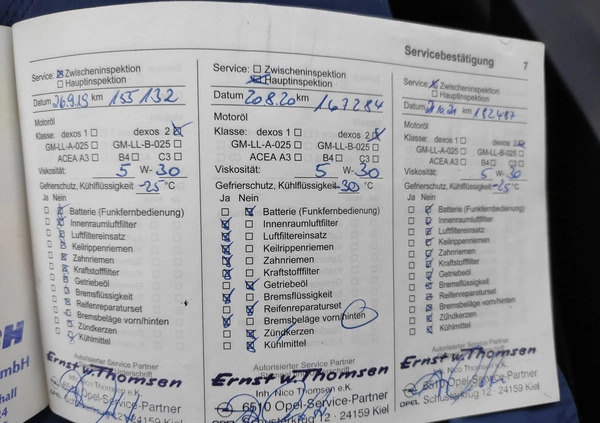 Servicebestätigung 7
Service: ☒ Zwischeninspektion
☐ Hauptinspektion
Datum 26.9.19 km 155 132
Motoröl
Klasse: dexos 1 ☐ dexos 2 ☒
GM-LL-A-025 ☐ GM-LL-B-025 ☐
ACEA A3 ☐ B4 ☐ C3 ☐
Viskosität: 5 W- 30
Gefrierschutz, Kühlflüssigkeit -25 °C
Ja Nein
Batterie (Funkfernbedienung)
Innenraumluftfilter
Luftfiltereinsatz
Keilrippenriemen
Zahnriemen
Kraftstofffilter
Getriebeöl
Bremsflüssigkeit
Reifenreparaturset
Bremsbeläge vorn/hinten
Zündkerzen
Kühlmittel
Autorisierter Service Partner
Ernst w. Thomsen
Inh. Nico Thomsen e.K.
6510 Opel-Service-Partner
Service: ☐ Zwischeninspektion
☒ Hauptinspektion
Datum 20.8.20 km 167284
Motoröl
Klasse: dexos 1 ☐ dexos 2 ☒
GM-LL-A-025 ☐ GM-LL-B-025 ☐
ACEA A3 ☐ B4 ☐ C3 ☐
Viskosität: 5 W- 30
Gefrierschutz, Kühlflüssigkeit -30 °C
Ja Nein
Batterie (Funkfernbedienung)
Innenraumluftfilter
Luftfiltereinsatz
Keilrippenriemen
Zahnriemen
Kraftstofffilter
Getriebeöl
Bremsflüssigkeit
Reifenreparaturset
Bremsbeläge vorn/hinten
Zündkerzen
Kühlmittel
Autorisierter Service Partner
Ernst w. Thomsen
Inh. Nico Thomsen e.K.
6510 Opel-Service-Partner
OPEL Schusterkrug 12 · 24159 Kiel
Service: ☒ Zwischeninspektion
☐ Hauptinspektion
Datum km 182487
Motoröl
Klasse: dexos 1 ☐ dexos 2 ☒
GM-LL-A-025 ☐ GM-LL-B-025 ☐
ACEA A3 ☐ B4 ☐ C3 ☐
Viskosität: 5 W- 30
Gefrierschutz, Kühlflüssigkeit -25 °C
Ja Nein
Batterie (Funkfernbedienung)
Innenraumluftfilter
Luftfiltereinsatz
Keilrippenriemen
Zahnriemen
Kraftstofffilter
Getriebeöl
Bremsflüssigkeit
Reifenreparaturset
Bremsbeläge vorn/hinten
Zündkerzen
Kühlmittel
Autorisierter Service Partner
Ernst w. Thomsen
Inh. Nico Thomsen e.K.
6510 Opel-Service-Partner
OPEL Schusterkrug 12 · 24159 Kiel